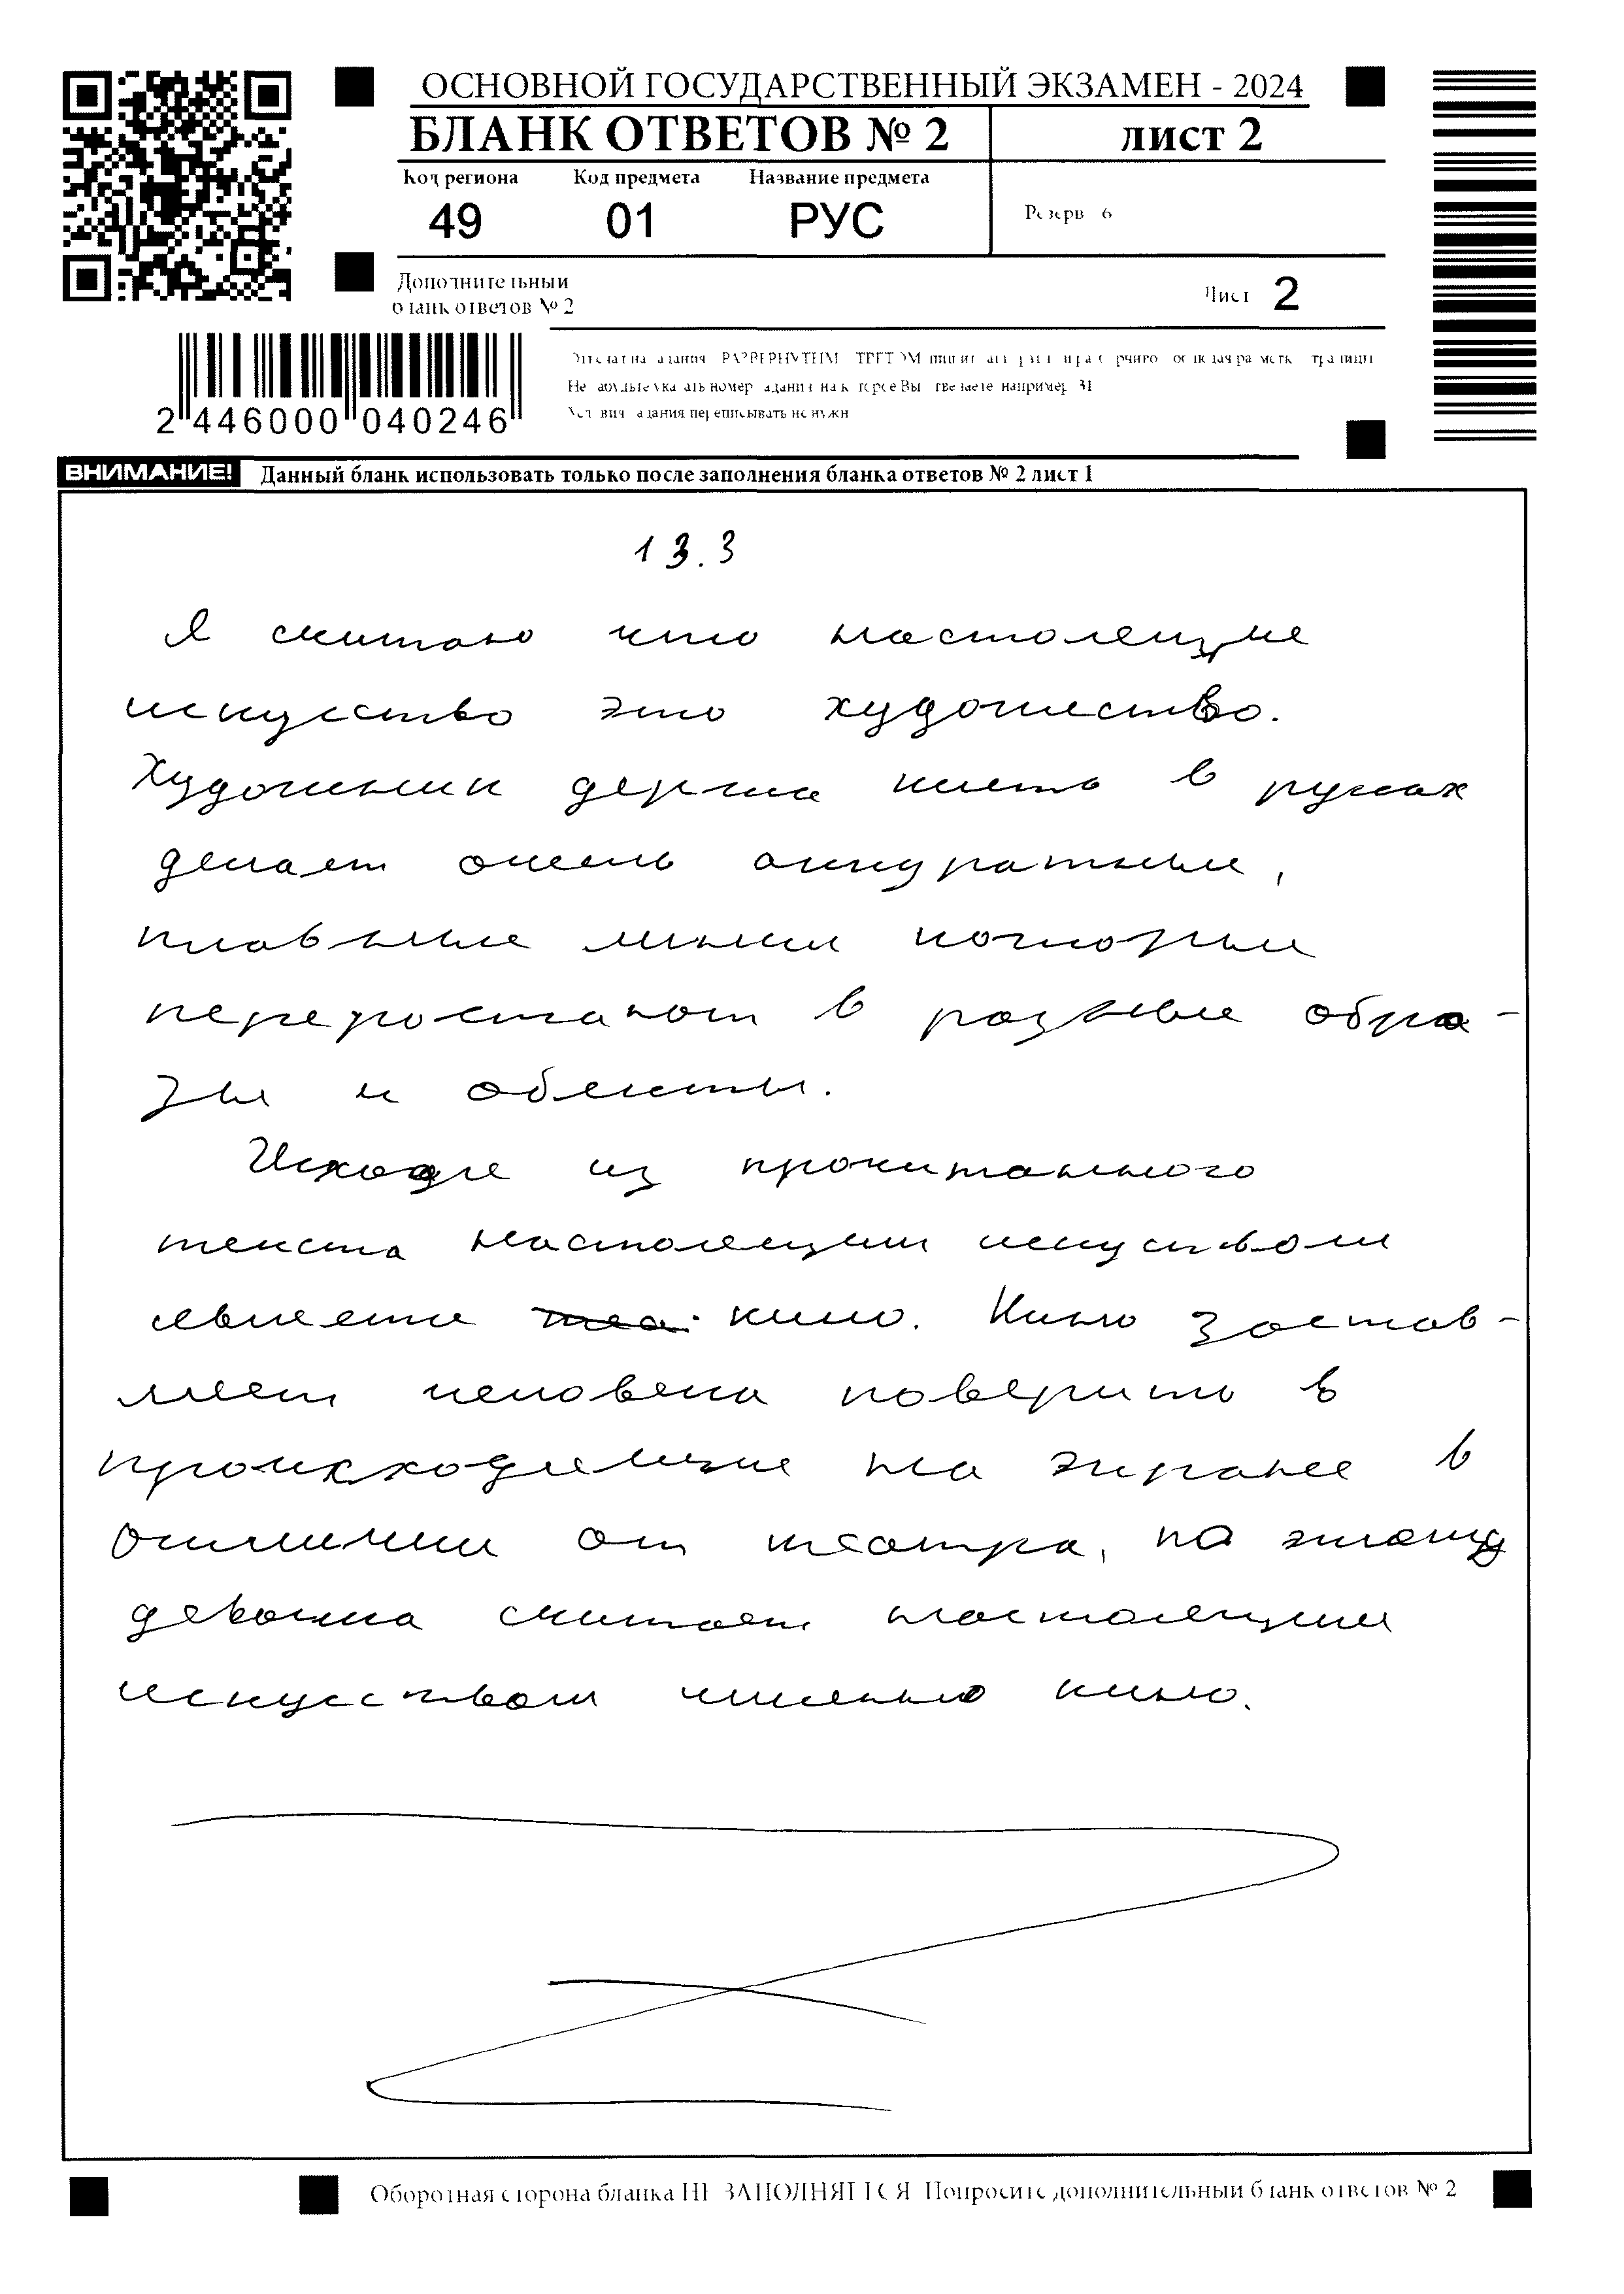 ОСНОВНОЙ ГОСУДАРСТВЕННЫЙ ЭКЗАМЕН - 2024
БЛАНК ОТВЕТОВ № 2
лист 2
Код региона Код предмета Название предмета
49 01 РУС
Резерв 6
Дополнительный
бланк ответов № 2
Лист 2
2 446000 040246
ВНИМАНИЕ! Данный бланк использовать только после заполнения бланка ответов № 2 лист 1
13.3
Я считаю что настоящие
искусство это художество.
Художник держа кисть в руках
делает очень аккуратные,
плавные линии которые
переростают в разные обра-
зы и обекты.
Исходя из прочитанного
текста настоящим искуством
является кино. Кино застав-
ляет человека поверить в
происходящие на экране в
отличии от театра, по этому
девочка считает настоящим
искусством именно кино.
Оборотная сторона бланка НЕ ЗАПОЛНЯЕТСЯ Попросите дополнительный бланк ответов № 2